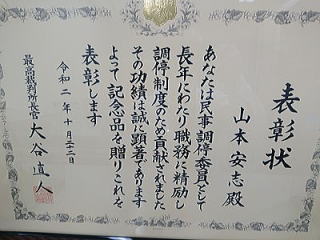 表彰状
山本安志殿
あなたは民事調停委員として
長年にわたり職務に精励し
調停制度のため貢献されました
その功績は誠に顕著であります
よって記念品を贈りこれを
表彰します
令和二年十月二十二日
最高裁判所長官 大谷直人